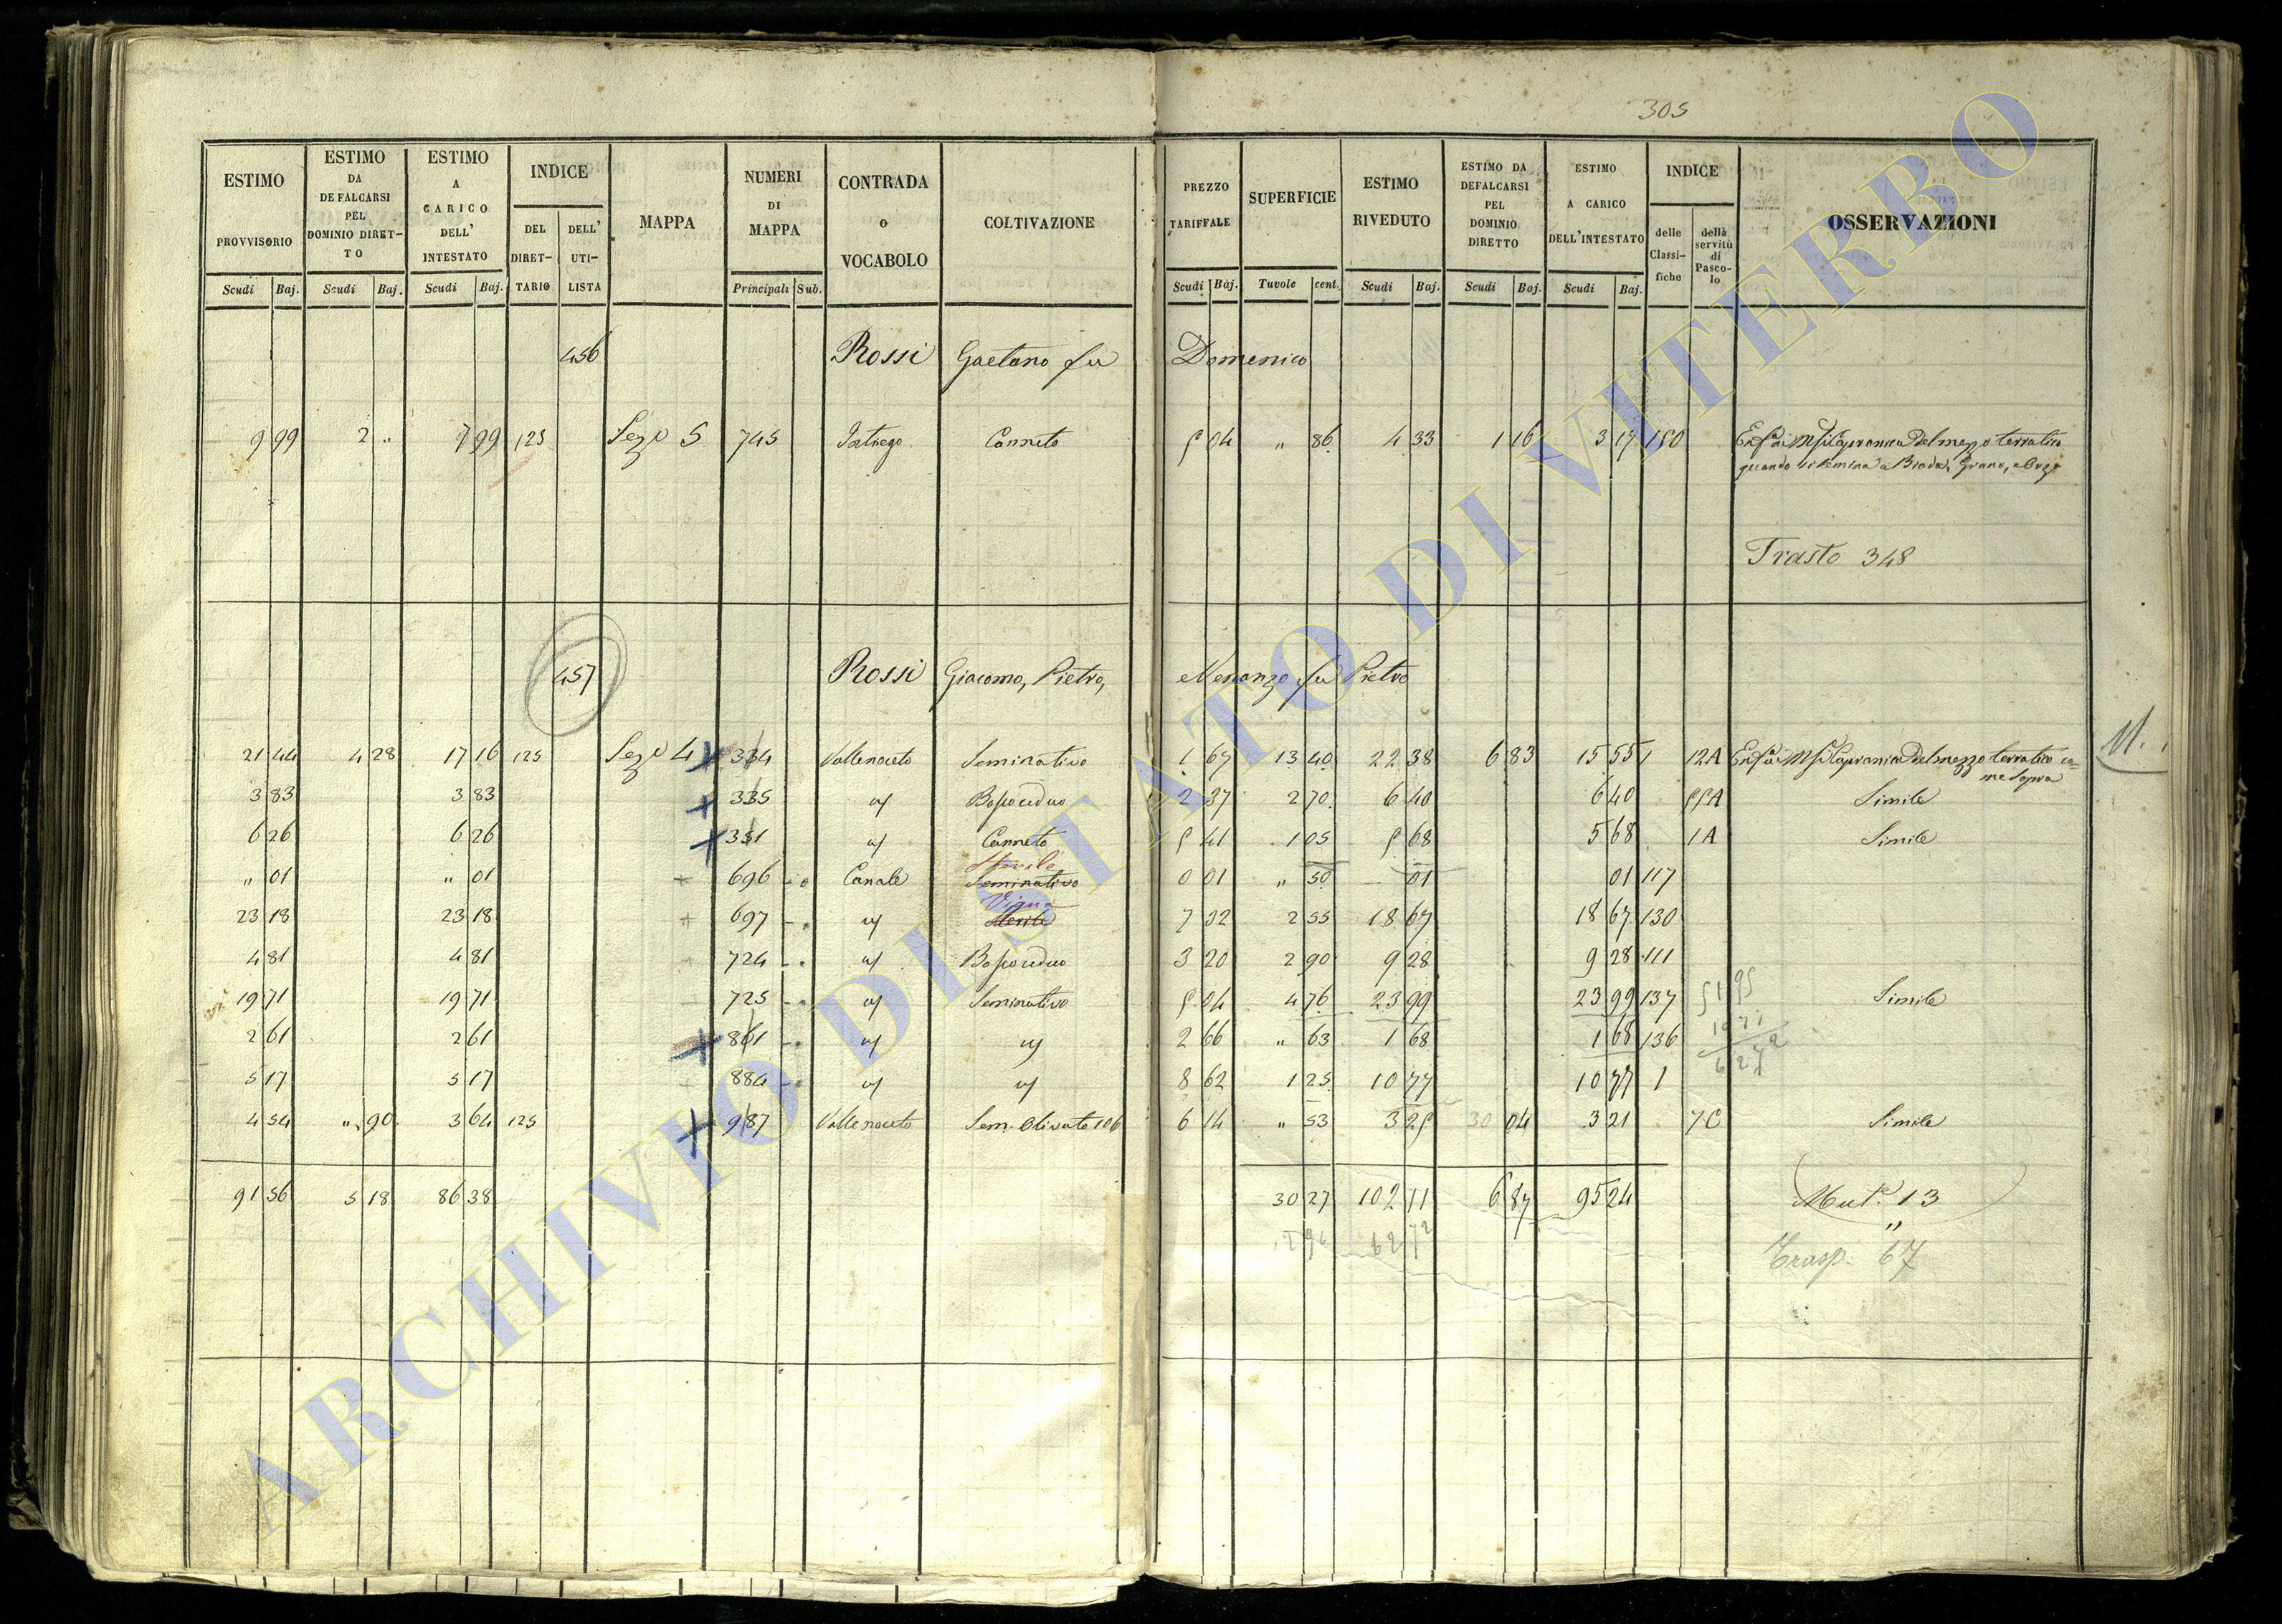 305
ESTIMO PROVVISORIO Scudi Baj.
ESTIMO DA DEFALCARSI PEL DOMINIO DIRET-TO Scudi Baj.
ESTIMO A CARICO DELL' INTESTATO Scudi Baj.
INDICE DEL DIRET-TARIO DELL' UTI-LISTA
MAPPA
NUMERI DI MAPPA Principali Sub.
CONTRADA o VOCABOLO
COLTIVAZIONE
PREZZO TARIFFALE Scudi Baj.
SUPERFICIE Tavole cent.
ESTIMO RIVEDUTO Scudi Baj.
ESTIMO DA DEFALCARSI PEL DOMINIO DIRETTO Scudi Baj.
ESTIMO A CARICO DELL'INTESTATO Scudi Baj.
INDICE delle Classi-fiche della servitù di Pasco-lo
OSSERVAZIONI
456 Rossi Gaetano fu Domenico
9 99 2 " 7 99 125 Sez.e 5 745 Canneto 5 04 " 86 4 33 1 16 3 17 150 del mezzo terratico
quando si semina a Biada, Grano, e Orzo
Trasto 348
457 Rossi Giacomo, Pietro, e Venanzo fu Pietro
21 44 4 28 17 16 125 Sez.e 4 334 Vallenoceto Seminativo 1 67 13 40 22 38 6 83 15 55 1 12A del mezzo terratico co-
me sopra
3 83 3 83 335 Bosco ceduo 2 37 2 70 6 40 6 40 55A Simile
6 26 6 26 351 Canneto 5 41 1 05 5 68 5 68 1A Simile
Sterile
" 01 " 01 696 Canale Seminativo 0 01 " 50 01 01 117
Vigna
23 18 23 18 697 Sterile 7 32 2 55 18 67 18 67 130
4 81 4 81 724 Bosco ceduo 3 20 2 90 9 28 9 28 111
19 71 19 71 725 Seminativo 5 04 4 76 23 99 23 99 137 51 95 Simile
2 61 2 61 861 2 66 " 63 1 68 1 68 136 10 77
5 17 5 17 884 8 62 1 25 10 77 10 77 1 62 72
4 54 " 90 3 64 125 987 Vallenoceto Sem. Olivato 106 6 14 " 53 3 25 04 3 21 7C Simile
91 56 5 18 86 38 30 27 102 11 6 87 95 24 Mut.e 13
62 72 "
Trasp. 67
ARCHIVIO DI STATO DI VITERBO